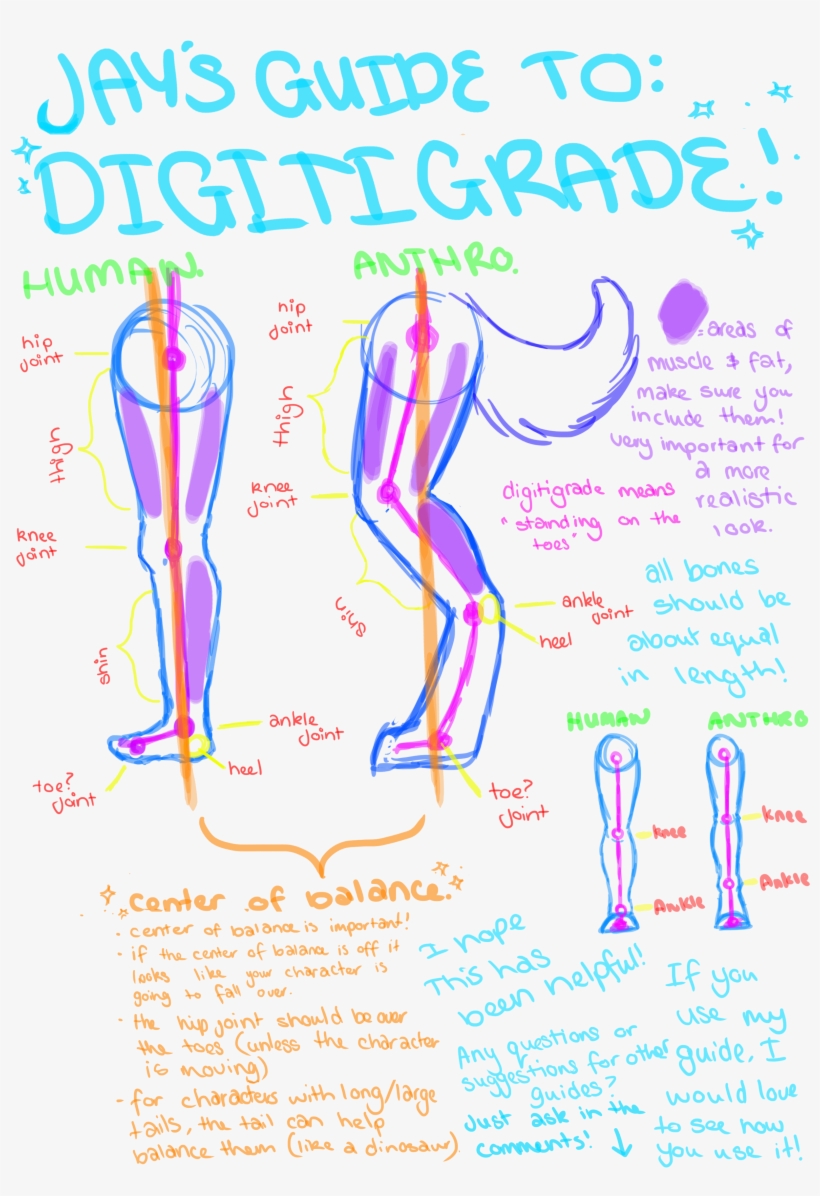 JAY'S GUIDE TO:
DIGITIGRADE!
HUMAN.
hip
joint
thigh
knee
joint
shin
ankle
joint
heel
toe?
joint
ANTHRO.
hip
joint
thigh
knee
joint
shin
ankle
joint
heel
toe?
joint
= areas of
muscle & fat,
make sure you
include them!
very important for
a more
realistic
look.
digitigrade means
"standing on the
toes"
all bones
should be
about equal
in length!
HUMAN
knee
Ankle
ANTHRO
knee
Ankle
center of balance.
· center of balance is important!
· if the center of balance is off it
looks like your character is
going to fall over.
· the hip joint should be over
the toes (unless the character
is moving)
- for characters with long/large
tails, the tail can help
balance them (like a dinosaur)
I hope
This has
been helpful!
Any questions or
suggestions for other
guides?
Just ask in the
comments! ↓
If you
use my
guide, I
would love
to see how
you use it!